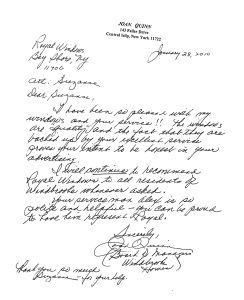 JOAN QUINN
143 Feller Drive
Central Islip, New York 11722
January 28, 2010
Royal Windows
Bay Shore, NY
11706
Att: Suzanne
Dear Suzanne,
I have been so pleased with my
windows and your service!! The windows
are quality and the fact that they are
backed up by your excellent service
proves your intent to be honest in your
advertising.
I will continue to recommend
Royal Windows to all residents of
Windbrooke whenever asked.
Your serviceman Alex is so
polite and helpful - you can be proud
to have him represent Royal.
Sincerely,
Joan Quinn
Board of Managers
Windbrooke
Homes
Thank you so much
Suzanne - for your help